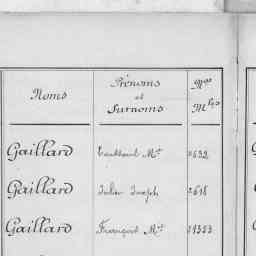 Noms
Prénoms
et
Surnoms
Nos
Mles
Gaillard
Mle
632
Gaillard
Julien Joseph
618
Gaillard
François Mle
1353